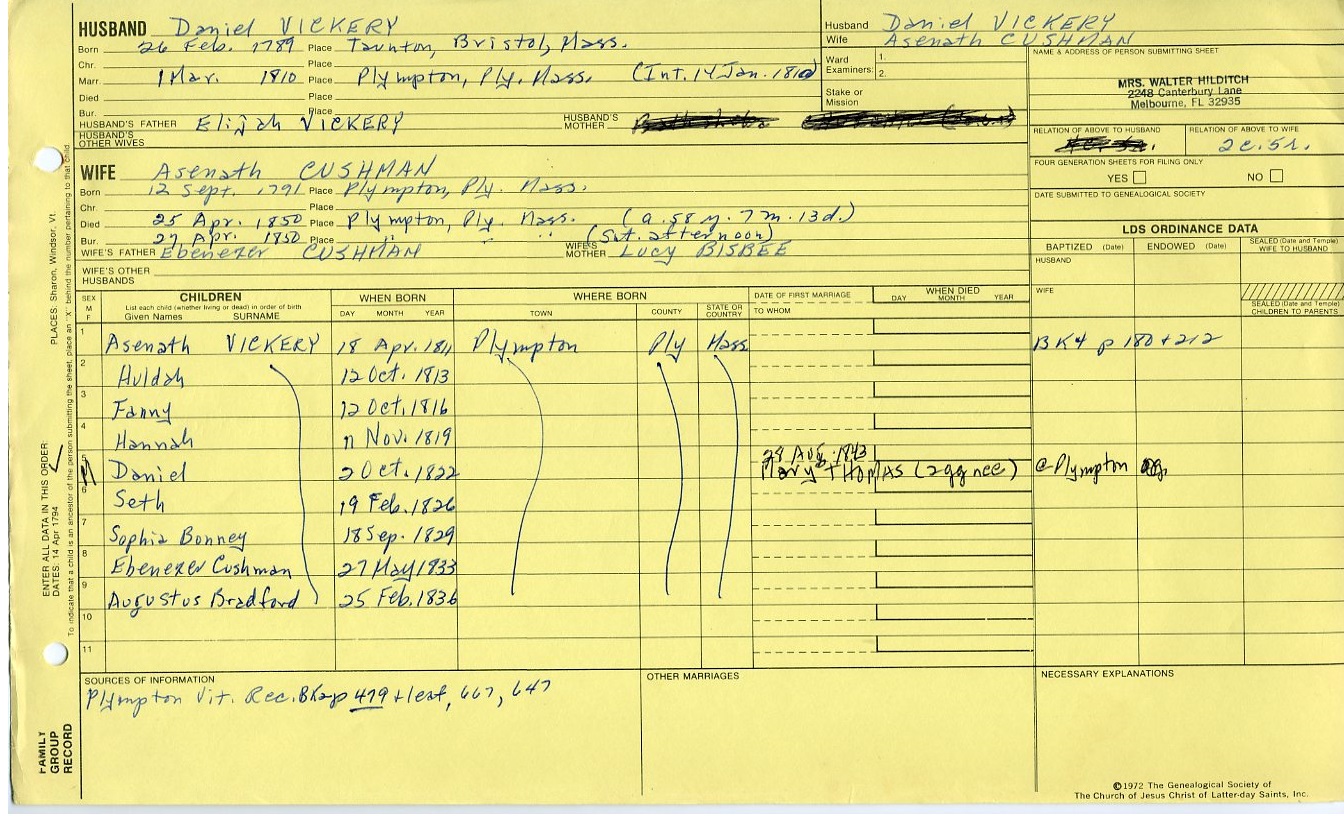 HUSBAND Daniel VICKERY
Born 26 Feb. 1789 Place Taunton, Bristol, Mass.
Chr. Place
Marr. 1 Mar. 1810 Place Plympton, Ply. Mass. (Int. 14 Jan. 1810)
Died Place
Bur. Place
HUSBAND'S FATHER Elijah VICKERY HUSBAND'S MOTHER
HUSBAND'S OTHER WIVES
Husband Daniel VICKERY
Wife Asenath CUSHMAN
Ward Examiners: 1.
2.
Stake or Mission
NAME & ADDRESS OF PERSON SUBMITTING SHEET
MRS. WALTER HILDITCH
2248 Canterbury Lane
Melbourne, FL 32935
RELATION OF ABOVE TO HUSBAND RELATION OF ABOVE TO WIFE
2c.5r.
FOUR GENERATION SHEETS FOR FILING ONLY
YES NO
DATE SUBMITTED TO GENEALOGICAL SOCIETY
WIFE Asenath CUSHMAN
Born 12 Sept. 1791 Place Plympton, Ply. Mass.
Chr. Place
Died 25 Apr. 1850 Place Plympton, Ply. Mass. (a.58 y. 7 m. 13 d.)
Bur. 27 Apr. 1850 Place " " " (Sat. afternoon)
WIFE'S FATHER Ebenezer CUSHMAN WIFE'S MOTHER Lucy BISBEE
WIFE'S OTHER HUSBANDS
LDS ORDINANCE DATA
BAPTIZED (Date) ENDOWED (Date) SEALED (Date and Temple) WIFE TO HUSBAND
HUSBAND
WIFE
SEALED (Date and Temple) CHILDREN TO PARENTS
SEX M F
CHILDREN
List each child (whether living or dead) in order of birth
Given Names SURNAME
WHEN BORN
DAY MONTH YEAR
WHERE BORN
TOWN COUNTY STATE OR COUNTRY
DATE OF FIRST MARRIAGE
TO WHOM
WHEN DIED
DAY MONTH YEAR
1 Asenath VICKERY 18 Apr. 1811 Plympton Ply Mass BK4 p 180+212
2 Huldah 12 Oct. 1813
3 Fanny 12 Oct. 1816
4 Hannah 11 Nov. 1819
28 Aug. 1843
5 Daniel 2 Oct. 1822 Mary THOMAS (2gg nee) @ Plympton
6 Seth 19 Feb. 1826
7 Sophia Bonney 18 Sep. 1829
8 Ebenezer Cushman 27 May 1833
9 Augustus Bradford 25 Feb. 1836
10
11
SOURCES OF INFORMATION
Plympton Vit. Rec. 479 + leaf, 667, 647
OTHER MARRIAGES
NECESSARY EXPLANATIONS
©1972 The Genealogical Society of
The Church of Jesus Christ of Latter-day Saints, Inc.
PLACES: Sharon, Windsor, Vt.
To indicate that a child is an ancestor of the person submitting the sheet, place an "X" behind the number pertaining to that child.
ENTER ALL DATA IN THIS ORDER:
DATES: 14 Apr 1794
FAMILY
GROUP
RECORD